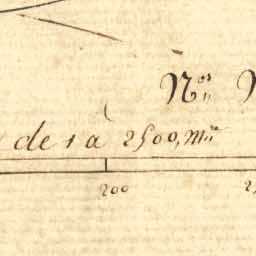 N.os N
de 1 à 2500, M.re
200
2